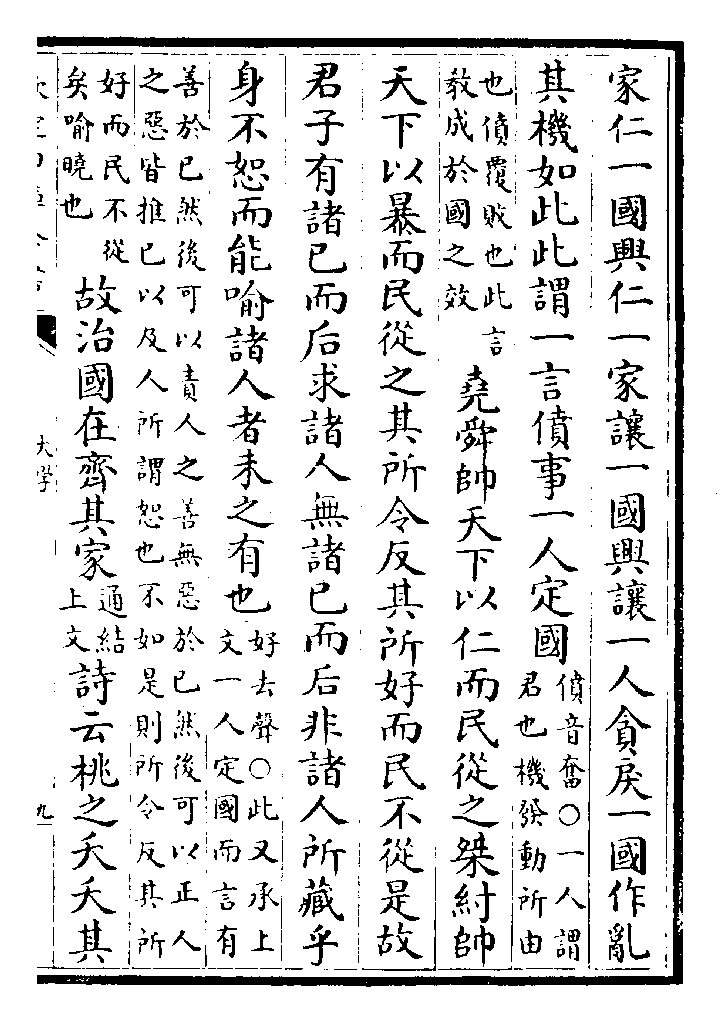 家仁一國興仁一家讓一國興讓一人貪戾一國作亂
其機如此此謂一言僨事一人定國
僨音奮○一人謂
君也機發動所由
也僨覆敗也此言
教成於國之效
堯舜帥天下以仁而民從之桀紂帥
天下以暴而民從之其所令反其所好而民不從是故
君子有諸已而后求諸人無諸已而后非諸人所藏乎
身不恕而能喻諸人者未之有也
好去聲○此又承上
文一人定國而言有
善於已然後可以責人之善無惡於已然後可以正人
之惡皆推已以及人所謂恕也不如是則所令反其所
好而民不從
矣喻曉也
故治國在齊其家
通結
上文
詩云桃之夭夭其
大學
九